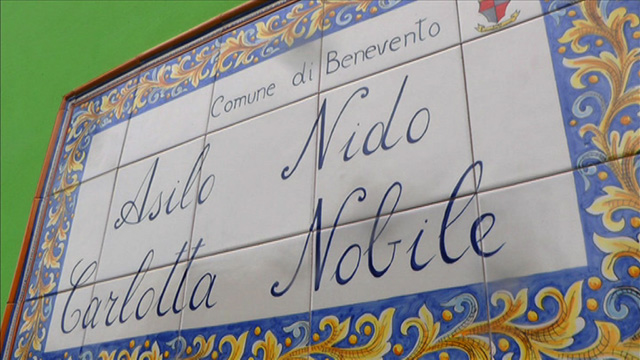 Comune di Benevento
Asilo Nido
Carlotta Nobile